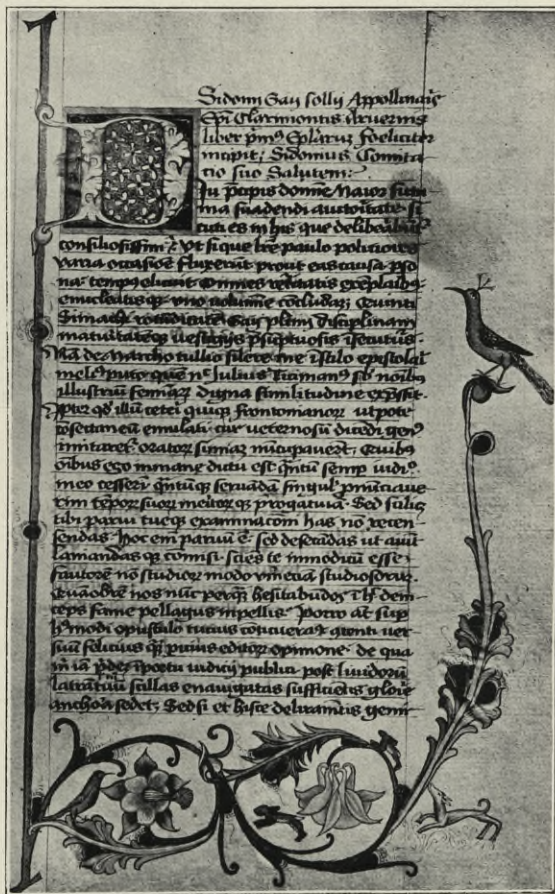 Sidonij Gaij sollij Appollinaris
Epi Clarimontis Aruernis
liber pmus Eplarum foeliciter
incipit; Sidonius Consta
tio suo Salutem:
DIu pcipis domine Maior sum
ma suadendi auctoritate si
cuti es in his que deliberabūt
consiliosissim9 Vt si que lre paulo politiores
varia occasiōe fluxerint prout eas causa psō
na tempus elicuit Omnes
enucleatis q; vno volumine Quinti
Simachi rotūditatē Gaij plinij disciplinam
maturitatemq; vestigijs psūptuosis isecutur9.
Nā de Marcho tullio silere me i stilo epistolari
meli9 puto quē nec Julius Titian9 sb noibus
illustriū feminar digna similitudine expressit.
ppter qd illū ceteri quiq; frontonianor vtpote
cōsectaneū emulati cur veternosū dicēdi gen9
imitaret oratorū simiam nūcupauerūt. Quibus
oibus ego immane dictu est qntū semp
meo cesserim qntūq; seruādā singulis pnūciaue
rim tēporū suorū meritorūq; progatiuā. Sed scilicet
tibi parui tueq; examinatiōni has nō recen
sendas hoc em paruū ē sed defecādas vt aiūt
lamandas q; comisi sciēs te immodicū esse
fautorē nō studiorum modo vm etiā studiosorum.
Quāobrē nos nūc perq; hesitabūdos ī h dein
ceps fame pellagus impellis. Porro aūt sup
hmōi opusculo tutius cōticueram9 cōtenti ver
suū felicius qm pitius editor opinione. de qua
m iā pdem i portu iudicij publici post liuidorū
latratuū scillas enauigatas sufficiētis glorie
anchora sedet; Sed si et hisce deliramētis genu